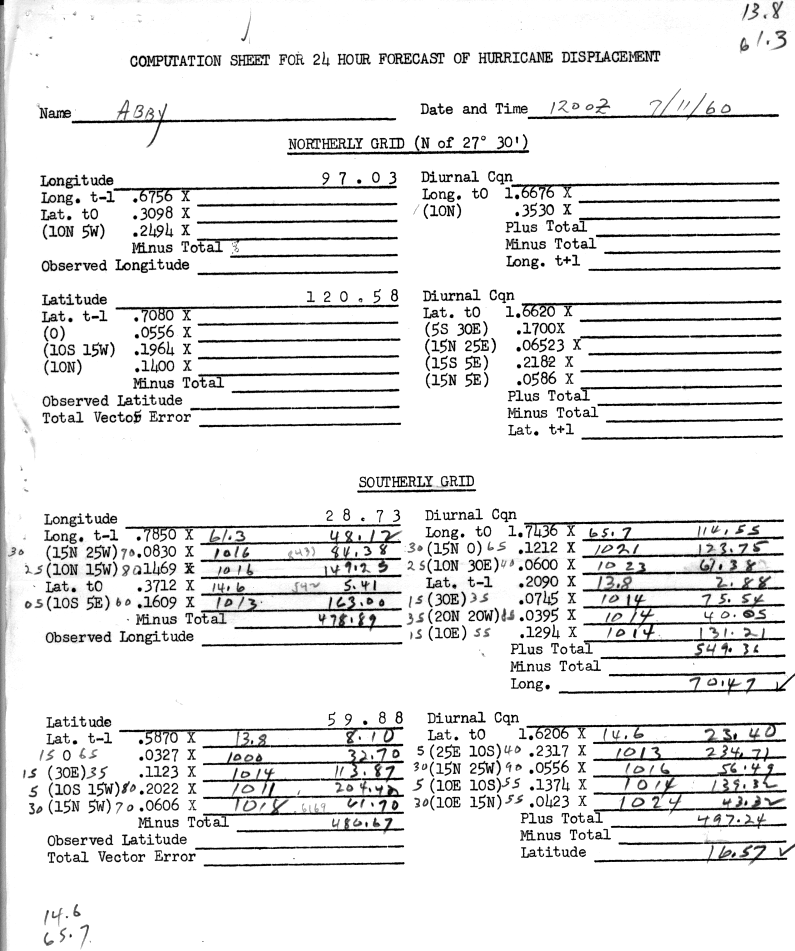 13.8
61.3
COMPUTATION SHEET FOR 24 HOUR FORECAST OF HURRICANE DISPLACEMENT
Name ABBY Date and Time 1200Z 7/11/60
NORTHERLY GRID (N of 27° 30')
Longitude 97.03 Diurnal Cqn
Long. t-1 .6756 X Long. t0 1.6676 X
Lat. t0 .3098 X (10N) .3530 X
(10N 5W) .2494 X Plus Total
Minus Total Minus Total
Observed Longitude Long. t+1
Latitude 120.58 Diurnal Cqn
Lat. t-1 .7080 X Lat. t0 1.6620 X
(0) .0556 X (5S 30E) .1700X
(10S 15W) .1964 X (15N 25E) .06523 X
(10N) .1400 X (15S 5E) .2182 X
Minus Total (15N 5E) .0586 X
Observed Latitude Plus Total
Total Vector Error Minus Total
Lat. t+1
SOUTHERLY GRID
Longitude 28.73 Diurnal Cqn
Long. t-1 .7850 X 61.3 48.12 Long. t0 1.7436 X 65.7 114.55
30 (15N 25W) 70 .0830 X 1016 8433 84.38 30 (15N 0) 65 .1212 X 1021 123.75
25 (10N 15W) 80 .1469 X 1016 149.25 25 (10N 30E) 40 .0600 X 1023 61.38
Lat. t0 .3712 X 14.6 542 5.41 Lat. t-1 .2090 X 13.8 2.88
05 (10S 5E) 60 .1609 X 1013 163.00 15 (30E) 35 .0745 X 1014 75.54
Minus Total 478.89 35 (20N 20W) 85 .0395 X 1014 40.05
Observed Longitude 15 (10E) 55 .1294 X 1014 131.21
Plus Total 549.36
Minus Total
Long. 70.47 ✓
Latitude 59.88 Diurnal Cqn
Lat. t-1 .5870 X 13.8 8.10 Lat. t0 1.6206 X 14.6 23.40
15 0 65 .0327 X 1000 32.70 5 (25E 10S) 40 .2317 X 1013 234.71
15 (30E) 35 .1123 X 1014 113.87 30 (15N 25W) 90 .0556 X 1016 56.49
5 (10S 15W) 80 .2022 X 1011 204.42 5 (10E 10S) 55 .1374 X 1014 139.32
30 (15N 5W) 70 .0606 X 1018 6169 61.70 30 (10E 15N) 55 .0423 X 1024 43.32
Minus Total 480.67 Plus Total 497.24
Observed Latitude Minus Total
Total Vector Error Latitude 16.57 ✓
14.6
65.7